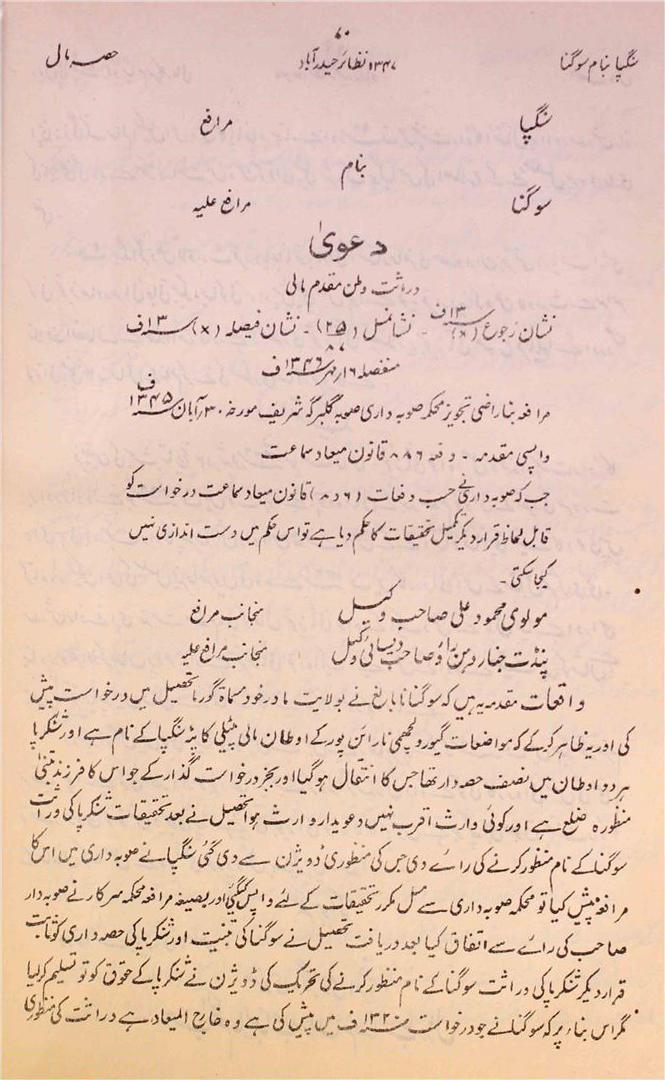 ۸۰
سنگپا بنام سوگنا ۱۳۴۷ نظائر حیدرآباد حصہ مال
سنگپا مرافع
بنام
سوگنا مرافع علیہ
دعویٰ
وراثت وطن مقدم مالی
نشان رجوع (۶) ۱۳ ف - نشانمثل (۲۵) - نشان فیصلہ (×) ۱۳ ف
منفصلہ ۱۶ مہر ۱۳۴۶ ف
مرافعہ بناراضی تجویز محکمہ صوبہ داری صوبہ گلبرگہ شریف مورخہ ۳۰ آبان ۱۳۴۵ ف
واپسی مقدمہ - دفعہ ۶ و ۸ قانون میعاد سماعت
جب کہ صوبہ داری نے حسب دفعات (۶ و ۸) قانون میعاد سماعت درخواست کو
قابل لحاظ قرار دیکر تکمیل تحقیقات کا حکم دیا ہے تو اس حکم میں دست اندازی نہیں
کیجا سکتی -
مولوی محمود علی صاحب وکیل منجانب مرافع
پنڈت جنار دہن راؤ صاحب دیسائی وکیل منجانب مرافع علیہ
واقعات مقدمہ یہ ہیں کہ سوگنا نابالغ نے بولایت مادر خود مسماۃ گورما تحصیل میں درخواست پیش
کی اور یہ ظاہر کر کے کہ مواضعات گیور و لچھمی نارائن پور کے اوطان مالی پٹیلی کا پٹہ سنگپا کے نام ہے اور شنکرپا
ہر دو اوطان میں نصیف حصہ دار تھا جس کا انتقال ہو گیا اور بجز درخواست گذار کے جو اس کا فرزند متبنیٰ
منظورہ ضلع ہے اور کوئی وارث اقرب نہیں دعویدار وارث ہوا تحصیل نے بعد تحقیقات شنکرپا کی وراثت
سوگنا کے نام منظور کرنے کی رائے دی جس کی منظوری ڈویژن سے دی گئی سنگپا نے صوبہ داری میں اس کا
مرافعہ پیش کیا تو محکمہ صوبہ داری سے مثل مکرر تحقیقات کے لئے واپس کیگئی اور بصیغہ مرافعہ محکمہ سرکار نے صوبہ دار
صاحب کی رائے سے اتفاق کیا بعد دریافت تحصیل نے سوگنا کی تبنیت اور شنکرپا کی حصہ داری کو ثابت
قرار دیکر شنکرپا کی وراثت سوگنا کے نام منظور کرنے کی تحریک کی ڈویژن نے شنکرپا کے حقوق کو تو تسلیم کر لیا
مگر اس بناء پر کہ سوگنا نے جو درخواست ۱۳۲۰ ف میں پیش کی ہے وہ خارج المیعاد ہے وراثت کی منظوری